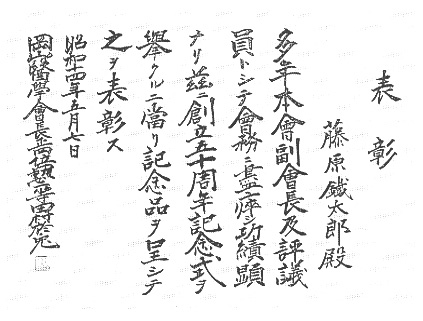 表彰
藤原鐵太郎殿
多年本會副會長及評議
員トシテ會務ニ盡瘁シ功績顯
ナリ茲ニ創立五十周年記念式ヲ
擧クルニ當リ記念品ヲ呈シテ
之ヲ表彰ス
昭和十四年五月七日
岡山醫學會長